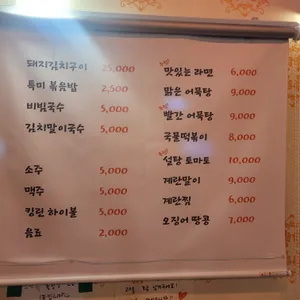 돼지김치구이 25,000
특미 볶음밥 2,500
비빔국수 5,000
김치말이국수 5,000
소주 5,000
맥주 5,000
킹린 하이볼 5,000
음료 2,000
맛있는 라면 6,000
맑은 어묵탕 9,000
빨간 어묵탕 9,000
국물떡볶이 8,000
설탕 토마토 10,000
계란말이 9,000
계란찜 6,000
오징어 땅콩 7,000